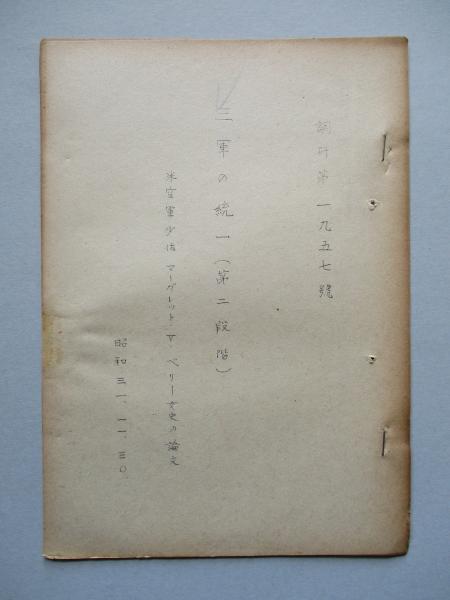 調研第一九五七號
三軍の統一(第二段階)
米空軍少佐マーグレット・マ・ペリー女史の論文
昭和三一、一一、三〇